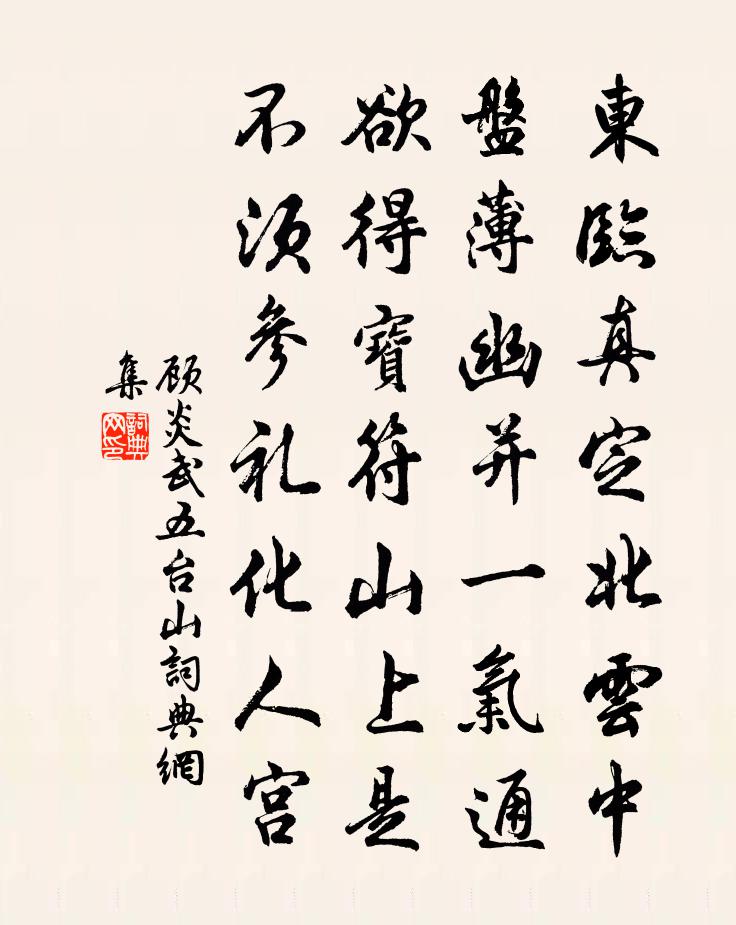 東臨真定北雲中
盤薄幽并一氣通
欲得寶符山上是
不須參礼化人宮
顾炎武五台山詞典網
集
詞典
网印